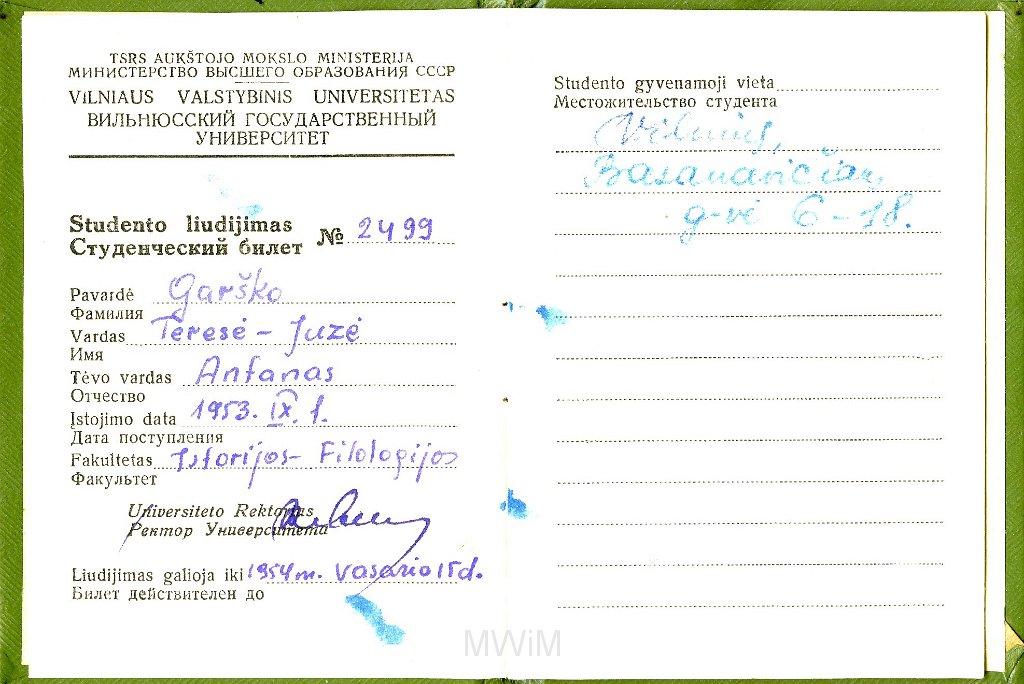 TSRS AUKŠTOJO MOKSLO MINISTERIJA
МИНИСТЕРСТВО ВЫСШЕГО ОБРАЗОВАНИЯ СССР
VILNIAUS VALSTYBINIS UNIVERSITETAS
ВИЛЬНЮССКИЙ ГОСУДАРСТВЕННЫЙ
УНИВЕРСИТЕТ
Studento liudijimas
Студенческий билет № 2499
Pavardė Garško
Фамилия
Vardas Teresė - Juzė
Имя
Tėvo vardas Antanas
Отчество
Įstojimo data 1953. IX. 1.
Дата поступления
Fakultetas Istorijos- Filologijos
Факультет
Universiteto Rektorius
Ректор Университета
Liudijimas galioja iki 1954 m. Vasario 15 d.
Билет действителен до
Studento gyvenamoji vieta
Местожительство студента
Vilnius,
Basanavičiaus,
g-vė 6-18.
MWiM